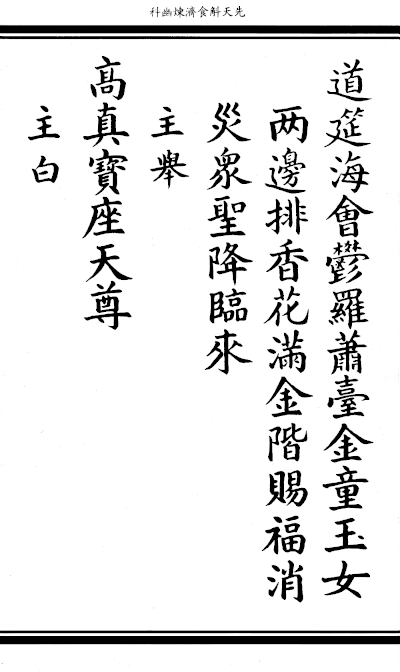 先天斛食濟煉幽科
道筵海會鬱羅蕭臺金童玉女
两邊排香花滿金階賜福消
災衆聖降臨來
主舉
高真寶座天尊
主白